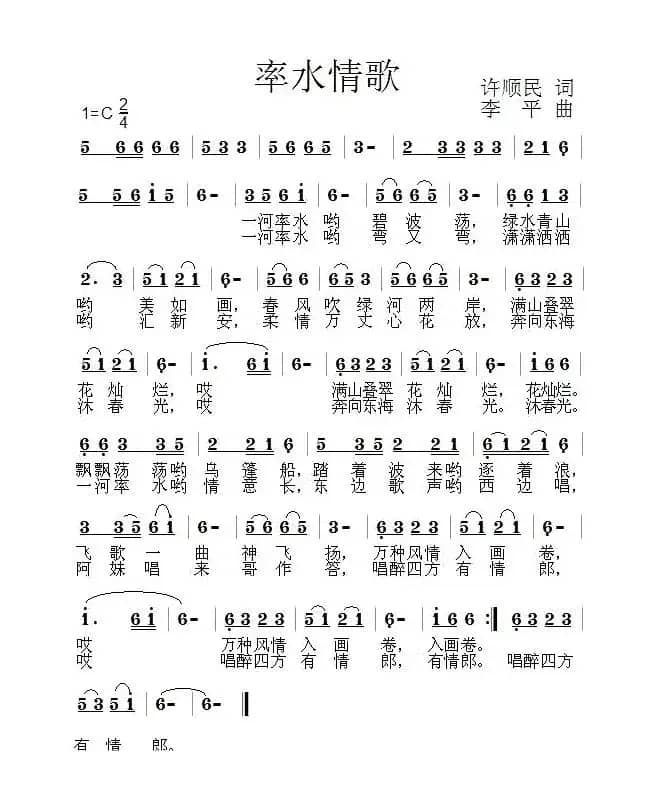 率水情歌
许顺民 词
李 平 曲
1=C 2/4
5 6 6 6 6 | 5 3 3 | 5 6 6 5 | 3 - | 2 3 3 3 3 | 2 1 6
5 5 6 1 5 | 6 - | 3 5 6 1 | 5 6 6 5 | 6 6 1 3
一河率水 哟 碧 波 荡, 绿水青山
一河率水 哟 弯 又 弯, 潇潇洒洒
2. 3 | 5 1 2 1 | 6 - | 5 6 6 | 5 6 5 3 | 2 3 6 5 | 3 - | 6 3 2 3
哟 美 如 画, 春 风 吹 绿 河 两 岸, 满山叠翠
哟 汇 新 安, 柔 情 万 丈 心 花 放, 奔向东海
5 1 2 1 | 6 - | 1. 6 1 | 6 - | 6 3 2 3 | 5 1 2 1 | 6 - | 1 6 6
花 灿 烂, 哎 满山叠翠 花 灿 烂, 花灿烂。
沐 春 光, 哎 奔向东海 沐 春 光。 沐春光。
6 6 3 3 5 | 2 2 1 | 6 - | 3 3 5 | 2 2 1 | 6 1 2 1 | 6 -
飘飘荡 荡哟 乌 篷 船, 踏 着 波 来哟 逐 着 浪,
一河率 水哟 情 意 长, 东 边 歌 声哟 西 边 唱,
3 3 5 6 1 | 6 - | 5 6 6 5 | 3 - | 6 3 2 3 | 5 1 2 1 | 6 -
飞 歌 一 曲 神 飞 扬, 万种风情 入 画 卷,
阿 妹 唱 来 哥 作 答, 唱醉四方 有 情 郎,
1. 6 1 | 6 - | 6 3 2 3 | 5 1 2 1 | 6 - | 1 6 6 :| 6 3 2 3
哎 万种风情 入 画 卷, 入画卷。
哎 唱醉四方 有 情 郎, 有情郎。 唱醉四方
5 3 5 1 | 6 - | 6 - |
有 情 郎。